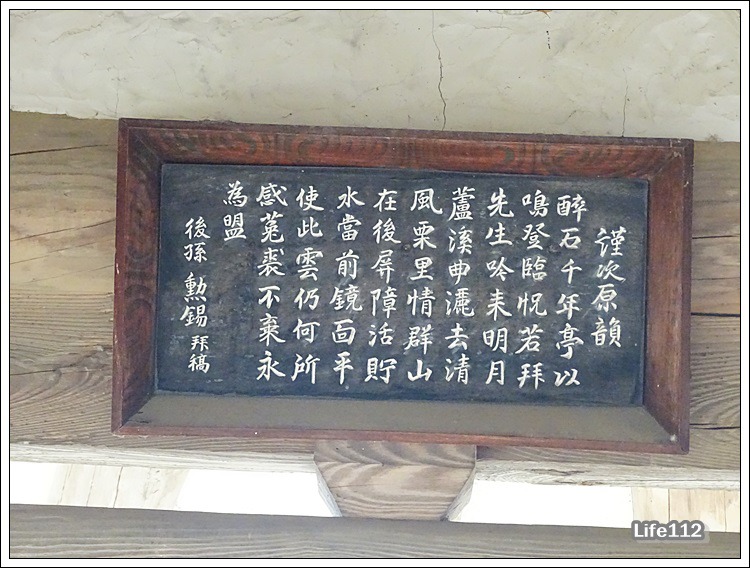 謹次原韻
醉石千年亭以
鳴登臨怳若拜
先生吟来明月
蘆溪曲灑去清
風栗里情群山
在後屏障活貯
水當前鏡面平
使此雲仍何所
感菟裘不棄永
為盟
後孫 勲錫 拜稿
Life112